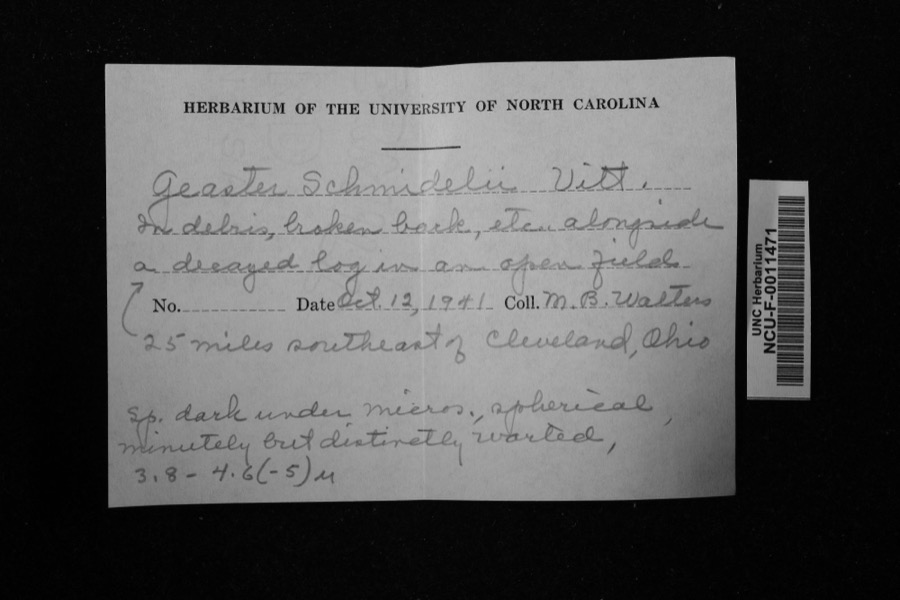 HERBARIUM OF THE UNIVERSITY OF NORTH CAROLINA
Geaster Schmidelii Vitt.
In debris, broken bark, etc. alongside
a decayed log in an open field
No. Date Oct. 12, 1941 Coll. M. B. Walters
25 miles southeast of Cleveland, Ohio
Sp. dark under micros., spherical,
minutely but distinctly warted,
3.8 - 4.6(-5) µ
UNC Herbarium
NCU-F-0011471